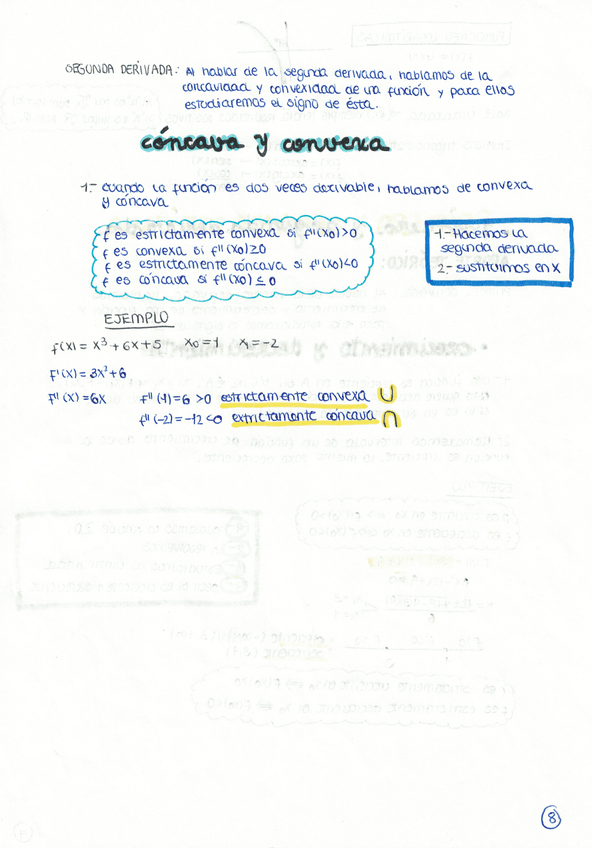 SEGUNDA DERIVADA: Al hablar de la segunda derivada, hablamos de la
concavidad y convexidad de una función y para ellos
estudiaremos el signo de ésta.
cóncava y convexa
1.- cuando la función es dos veces derivable, hablamos de convexa
y cóncava
f es estrictamente convexa si f''(x0)>0
f es convexa si f''(x0)≥0
f es estrictamente cóncava si f''(x0)<0
f es cóncava si f''(x0) ≤ 0
1.- Hacemos la
segunda derivada
2.- sustituimos en x
EJEMPLO
f(x) = x³ + 6x + 5 x0 = 1 x1 = -2
f'(x) = 3x² + 6
f''(x) = 6x f''(1) = 6 >0 estrictamente convexa ∪
f''(-2) = -12 <0 extrictamente cóncava ∩
8